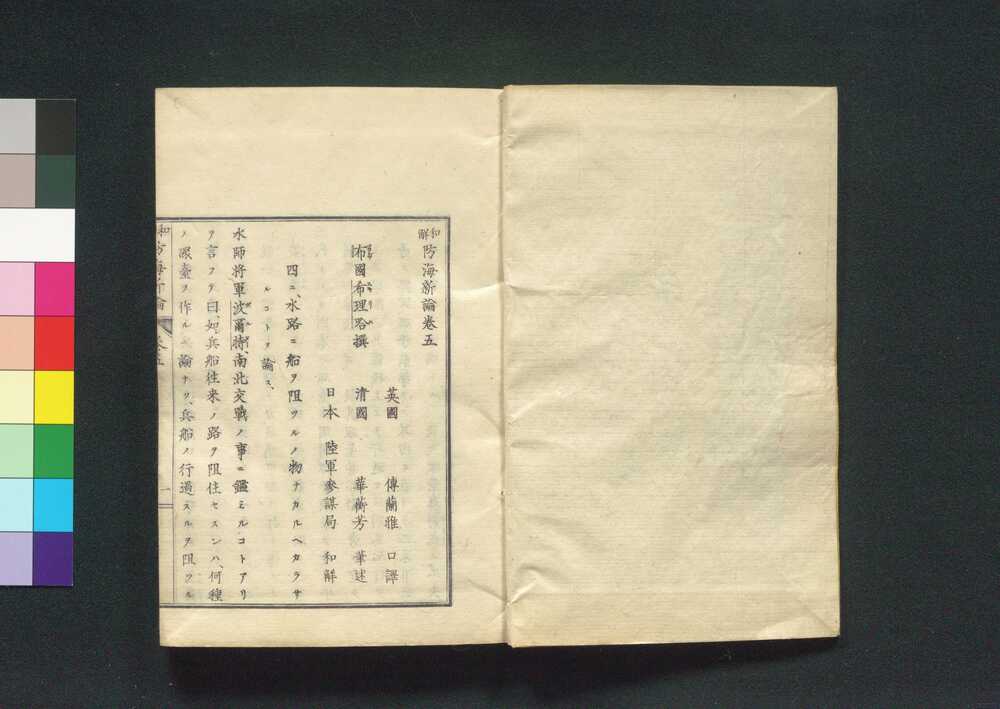 和解防海新論卷五
布國希理哈撰
英國 傅蘭雅 口譯
清國 華蘅芳 筆述
日本 陸軍參謀局 和解
四ニ、水路ニ船ヲ阻ツルノ物ナカルヘカラサ
ルコトヲ論ス、
水師將軍波爾特南北交戰ノ事ニ鑑ミルコトアリ
ヲ言フテ曰、如兵船往来ノ路ヲ阻住セスンハ、何種
ノ礮臺ヲ作ルモ論ナク、兵船ノ行過スルヲ阻ツル
和 防海新論 卷五 一